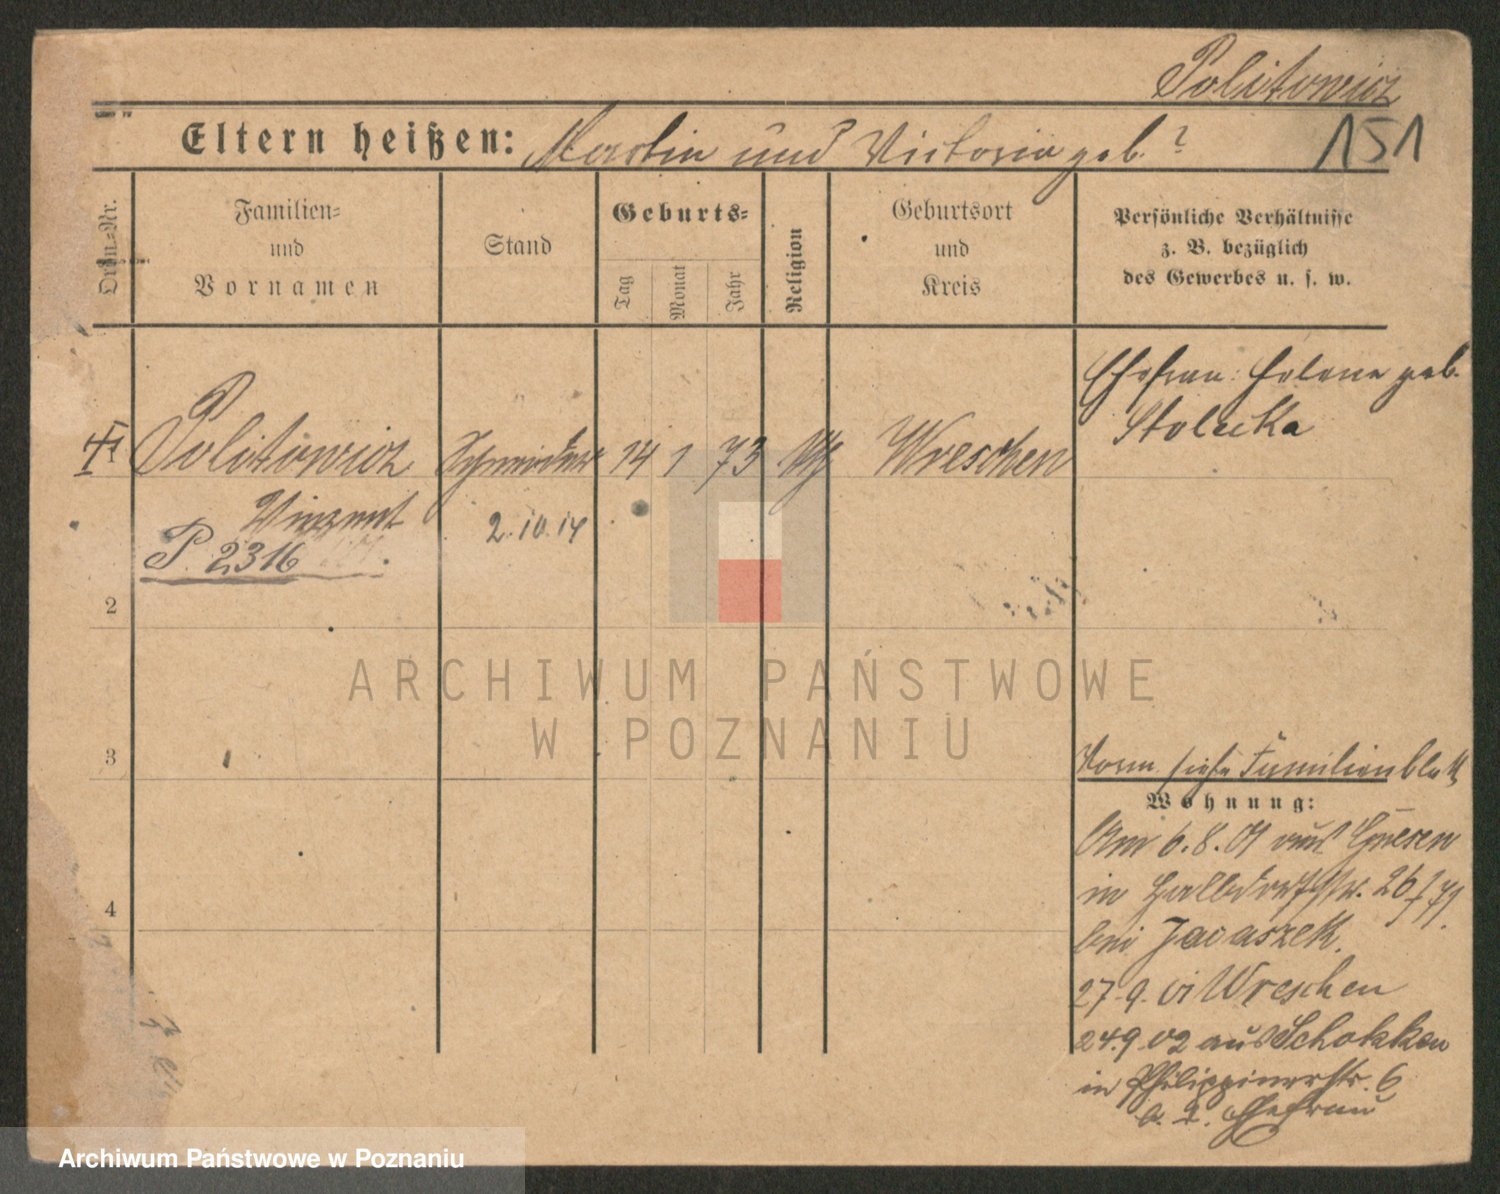 Politowicz
Eltern heißen: Martin und Victoria geb. ?
151
Ordn.-Nr.
Familien-
und
Vornamen
Stand
Geburts-
Tag
Monat
Jahr
Religion
Geburtsort
und
Kreis
Persönliche Verhältnisse
z. B. bezüglich
des Gewerbes u. s. w.
Ehefrau: Helene geb.
Stolecka
1 Politowicz Schneider 14 1 73 Wreschen
Vinzent
2.10.14
P. 2316
2
3
4
ARCHIWUM PAŃSTWOWE
W POZNANIU
siehe Familienblatt
Wohnung:
Am 6.8.01 aus Gnesen
in Halbdorfstr. 26
bei Jacaszek.
27.9.01 Wreschen
24.9.02 aus Schokken
in Philippinerstr. 6
Ehefrau
Archiwum Państwowe w Poznaniu